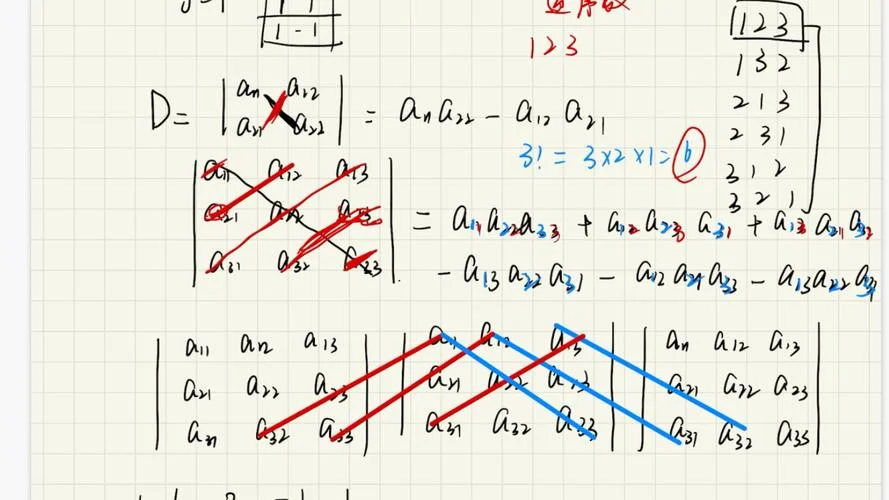 1 -1
逆序数
1 2 3
1 2 3
1 3 2
2 1 3
2 3 1
3 1 2
3 2 1
D = | a₁₁ a₁₂ | = a₁₁a₂₂ - a₁₂a₂₁
| a₂₁ a₂₂ |
3! = 3×2×1 = 6
| a₁₁ a₁₂ a₁₃ |
| a₂₁ a₂₂ a₂₃ | = a₁₁a₂₂a₃₃ + a₁₂a₂₃a₃₁ + a₁₃a₂₁a₃₂
| a₃₁ a₃₂ a₃₃ | - a₁₃a₂₂a₃₁ - a₁₂a₂₁a₃₃ - a₁₃a₂₂a₃₁
| a₁₁ a₁₂ a₁₃ | a₁₁ a₁₂ a₁₃ | a₁₁ a₁₂ a₁₃ |
| a₂₁ a₂₂ a₂₃ | a₂₁ a₂₂ a₂₃ | a₂₁ a₂₂ a₂₃ |
| a₃₁ a₃₂ a₃₃ | a₃₁ a₃₂ a₃₃ | a₃₁ a₃₂ a₃₃ |